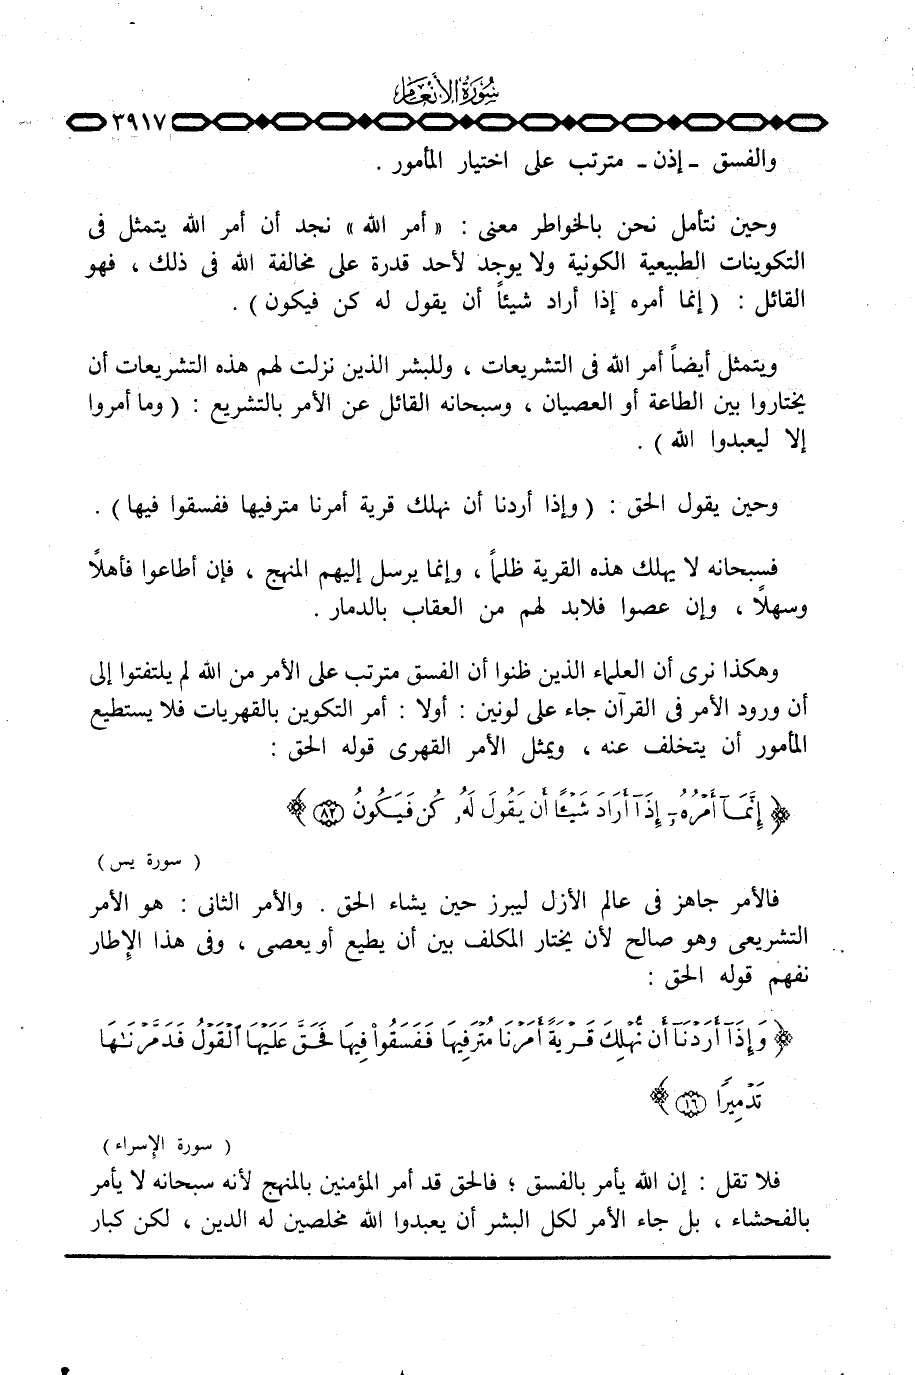 سورة الأنعام
٣٩١٧
والفسق ـ إذن ـ مترتب على اختيار المأمور .
وحين نتأمل نحن بالخواطر معنى : « أمر الله » نجد أن أمر الله يتمثل فى
التكوينات الطبيعية الكونية ولا يوجد لأحد قدرة على مخالفة الله فى ذلك ، فهو
القائل : ( إنما أمره إذا أراد شيئاً أن يقول له كن فيكون ) .
ويتمثل أيضاً أمر الله فى التشريعات ، وللبشر الذين نزلت لهم هذه التشريعات أن
يختاروا بين الطاعة أو العصيان ، وسبحانه القائل عن الأمر بالتشريع : ( وما أمروا
إلا ليعبدوا الله ) .
وحين يقول الحق : ( وإذا أردنا أن نهلك قرية أمرنا مترفيها ففسقوا فيها ) .
فسبحانه لا يهلك هذه القرية ظلماً ، وإنما يرسل إليهم المنهج ، فإن أطاعوا فأهلاً
وسهلاً ، وإن عصوا فلابد لهم من العقاب بالدمار .
وهكذا نرى أن العلماء الذين ظنوا أن الفسق مترتب على الأمر من الله لم يلتفتوا إلى
أن ورود الأمر فى القرآن جاء على لونين : أولا : أمر التكوين بالقهريات فلا يستطيع
المأمور أن يتخلف عنه ، ويمثل الأمر القهرى قوله الحق :
﴿ إِنَّمَآ أَمْرُهُۥٓ إِذَآ أَرَادَ شَيْـًٔا أَن يَقُولَ لَهُۥ كُن فَيَكُونُ ٨٢ ﴾
( سورة يس )
فالأمر جاهز فى عالم الأزل ليبرز حين يشاء الحق . والأمر الثانى : هو الأمر
التشريعى وهو صالح لأن يختار المكلف بين أن يطيع أو يعصى ، وفى هذا الإطار
نفهم قوله الحق :
﴿ وَإِذَآ أَرَدْنَآ أَن نُّهْلِكَ قَرْيَةً أَمَرْنَا مُتْرَفِيهَا فَفَسَقُوا۟ فِيهَا فَحَقَّ عَلَيْهَا ٱلْقَوْلُ فَدَمَّرْنَـٰهَا
تَدْمِيرًا ١٦ ﴾
( سورة الإسراء )
فلا تقل : إن الله يأمر بالفسق ؛ فالحق قد أمر المؤمنين بالمنهج لأنه سبحانه لا يأمر
بالفحشاء ، بل جاء الأمر لكل البشر أن يعبدوا الله مخلصين له الدين ، لكن كبار